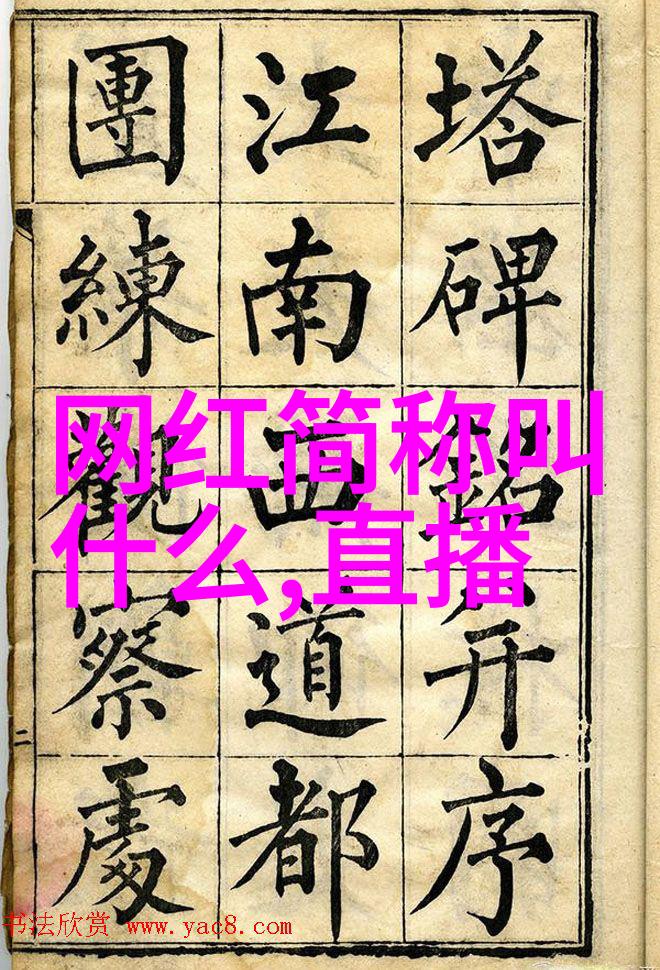 塔碑銘并序
江南西道都
團練觀察處
二
网红简称叫
什么,直播
书法欣赏 www.yac8.com